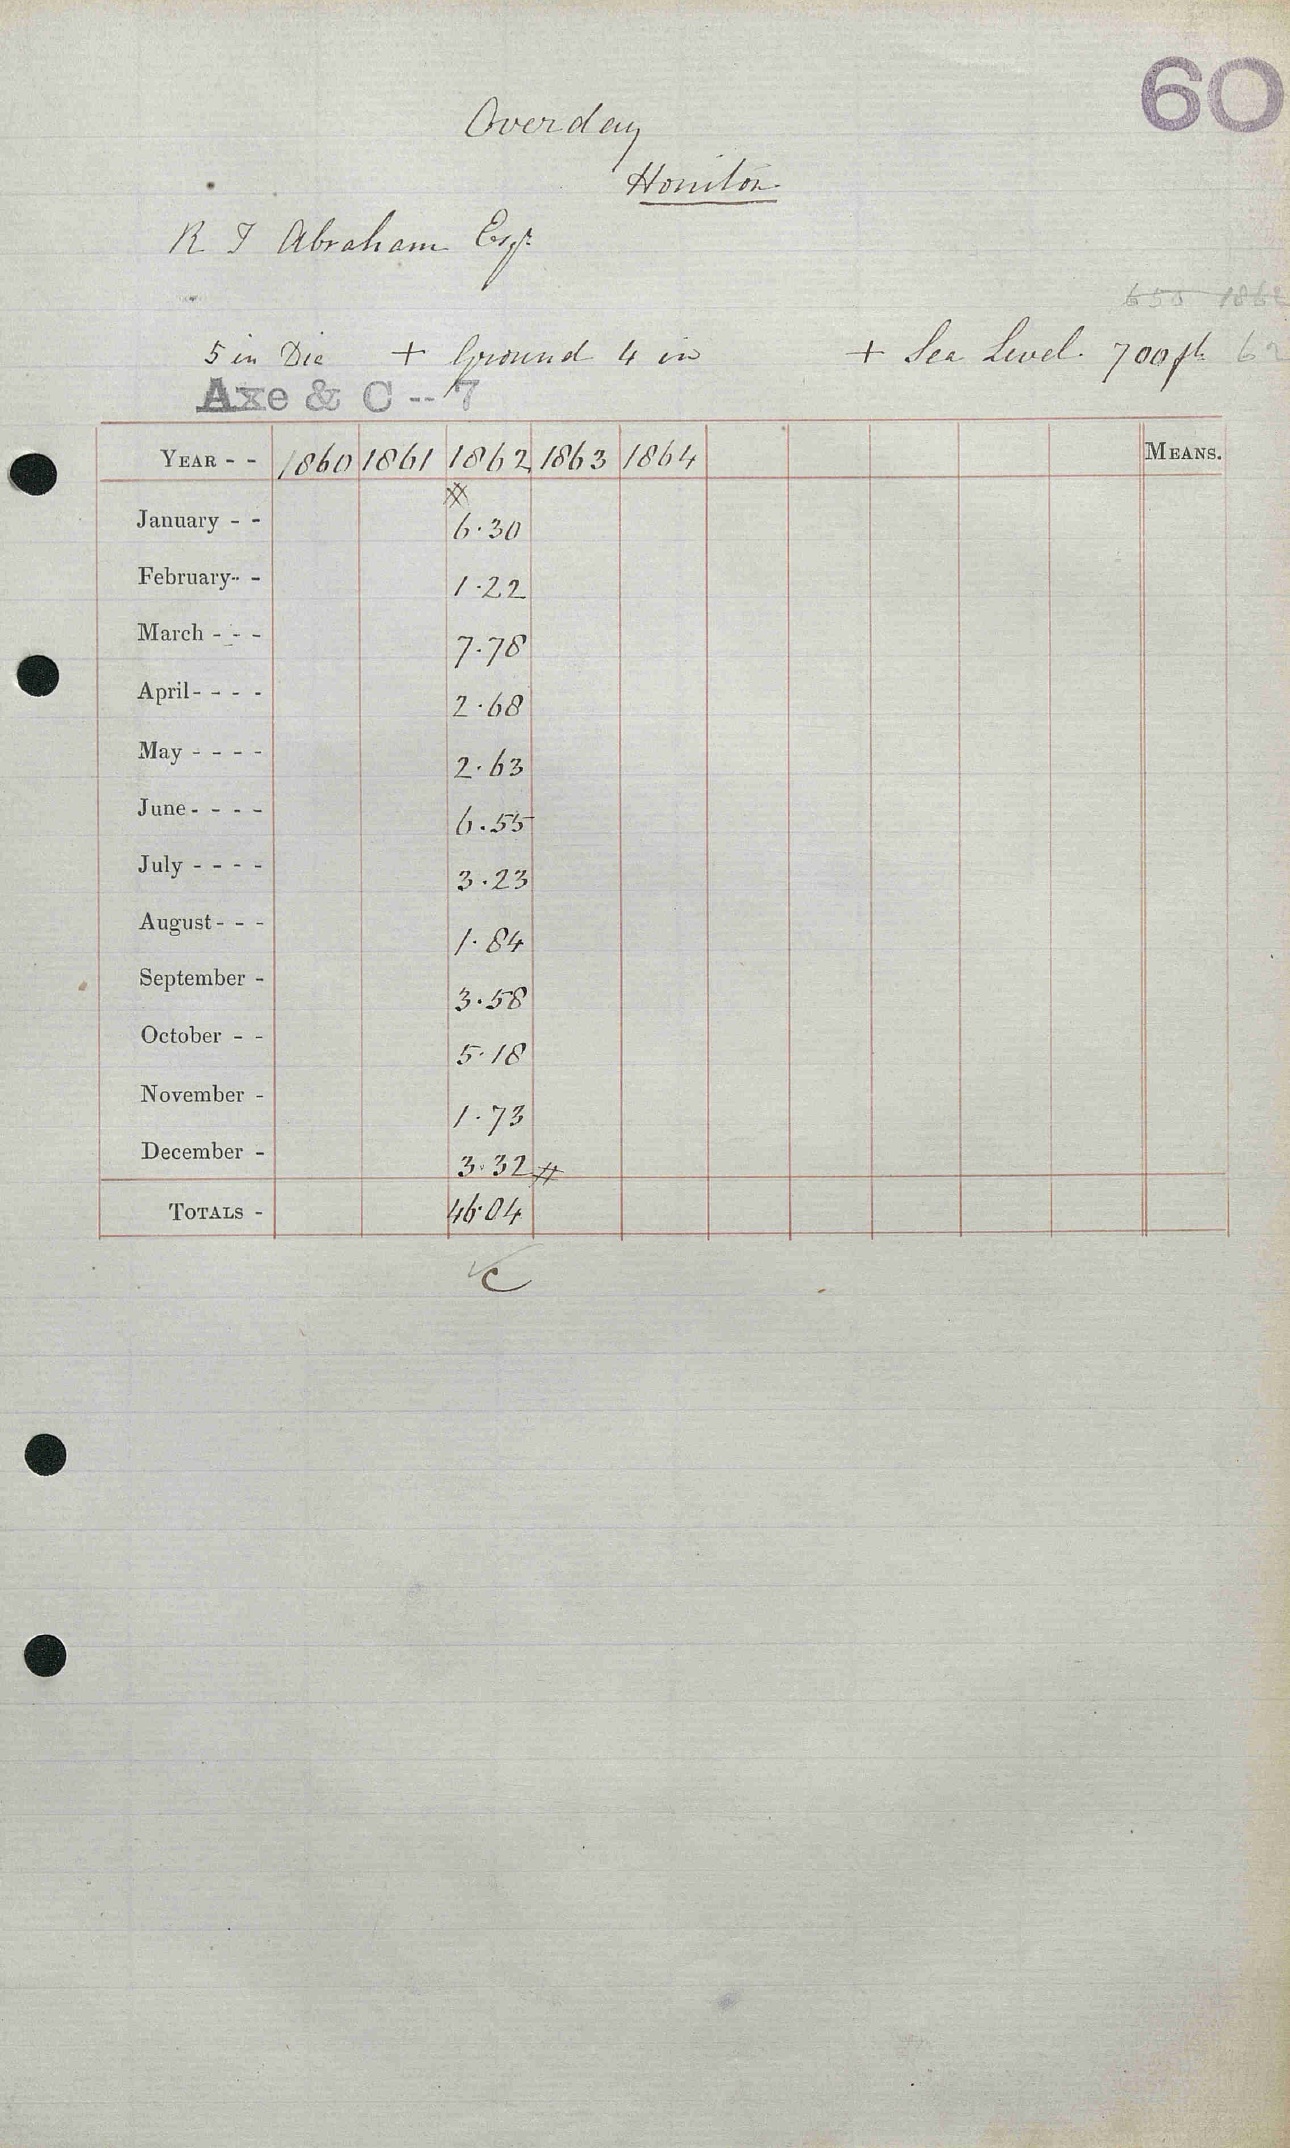 60
Overday
Honiton
R T Abraham Esqr
650 1862
5 in Dia + Ground 4 in + Sea Level. 700 ft 62
Axe & C -- 7
YEAR - - 1860 1861 1862 1863 1864 MEANS.
January - - 6.30
February - - 1.22
March - - - 7.78
April - - - - 2.68
May - - - - 2.63
June - - - - 6.55
July - - - - 3.23
August - - - 1.84
September - 3.58
October - - 5.18
November - 1.73
December - 3.32
TOTALS - 46.04
C